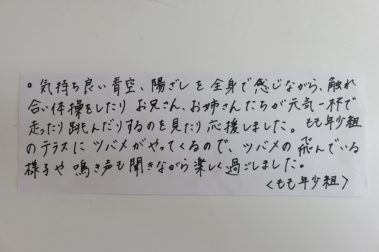 ○ 気持ち良い青空、陽ざしを全身で感じながら、触れ
合い体操をしたりお兄さん、お姉さんたちが元気一杯で
走ったり跳んだりするのを見たり応援しました。もも年少組
のテラスにツバメがやってくるので、ツバメの飛んでいる
様子や鳴き声も聞きながら楽しく過ごしました。
<もも年少組>